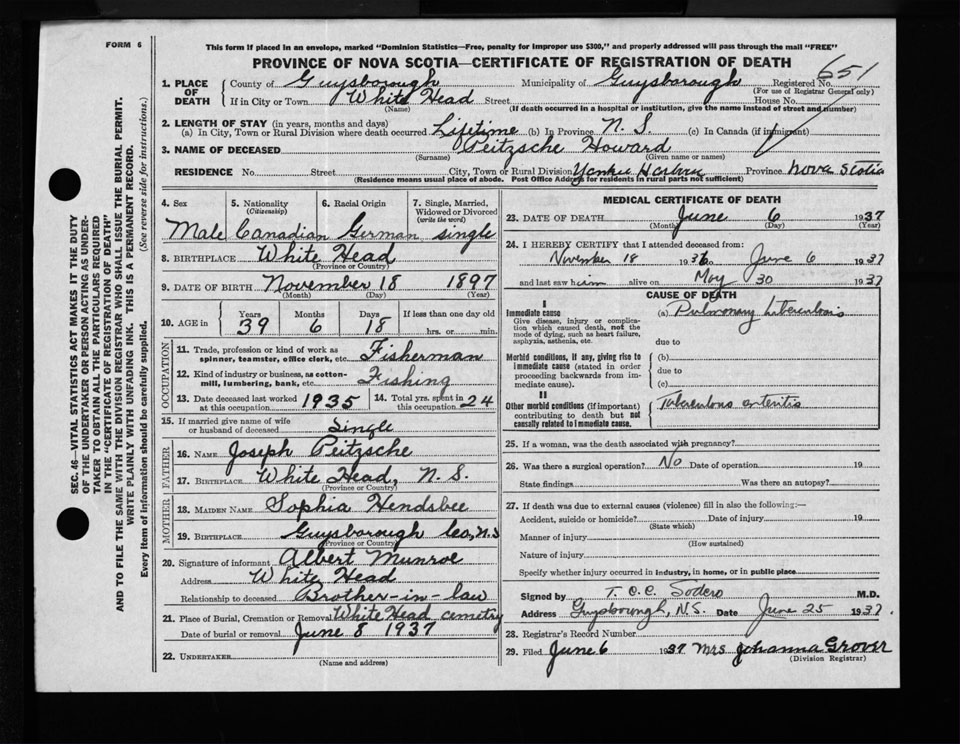 FORM 6
This form if placed in an envelope, marked "Dominion Statistics—Free, penalty for improper use $300," and properly addressed will pass through the mail "FREE"
PROVINCE OF NOVA SCOTIA—CERTIFICATE OF REGISTRATION OF DEATH
651
1. PLACE OF DEATH County of Guysborough Municipality of Guysborough Registered No.
(For use of Registrar General only)
If in City or Town White Head Street House No.
(Name) (If death occurred in a hospital or institution, give the name instead of street and number)
2. LENGTH OF STAY (in years, months and days)
(a) In City, Town or Rural Division where death occurred Lifetime (b) In Province N. S. (c) In Canada (if immigrant)
3. NAME OF DECEASED Peitzsche Howard
(Surname) (Given name or names)
RESIDENCE No. Street City, Town or Rural Division Yankee Harbour Province Nova Scotia
(Residence means usual place of abode. Post Office Address for residents in rural parts not sufficient)
4. Sex 5. Nationality (Citizenship) 6. Racial Origin 7. Single, Married, Widowed or Divorced (write the word)
Male Canadian German single
8. BIRTHPLACE White Head
(Province or Country)
9. DATE OF BIRTH November 18 1897
(Month) (Day) (Year)
10. AGE in Years Months Days If less than one day old
39 6 18 hrs. or min.
OCCUPATION
11. Trade, profession or kind of work as spinner, teamster, office clerk, etc. Fisherman
12. Kind of industry or business, as cotton-mill, lumbering, bank, etc. Fishing
13. Date deceased last worked at this occupation 1935 14. Total yrs. spent in this occupation 24
15. If married give name of wife or husband of deceased Single
FATHER
16. NAME Joseph Peitzsche
17. BIRTHPLACE White Head, N. S.
(Province or Country)
MOTHER
18. MAIDEN NAME Sophia Hendsbee
19. BIRTHPLACE Guysborough Co, N.S
(Province or Country)
20. Signature of informant Albert Munroe
Address White Head
Relationship to deceased Brother-in-law
21. Place of Burial, Cremation or Removal White Head cemetry
Date of burial or removal June 8 1937
22. UNDERTAKER
(Name and address)
MEDICAL CERTIFICATE OF DEATH
23. DATE OF DEATH June 6 1937
(Month) (Day) (Year)
24. I HEREBY CERTIFY that I attended deceased from:
November 18 1936 to June 6 1937
and last saw him alive on May 30 1937
CAUSE OF DEATH
I
Immediate cause
Give disease, injury or complication which caused death, not the mode of dying, such as heart failure, asphyxia, asthenia, etc.
(a) Pulmonary tuberculosis
due to
Morbid conditions, if any, giving rise to immediate cause (stated in order proceeding backwards from immediate cause).
(b)
due to
(c)
II
Other morbid conditions (if important) contributing to death but not causally related to immediate cause.
Tuberculous enteritis
25. If a woman, was the death associated with pregnancy?
26. Was there a surgical operation? No Date of operation 19
State findings Was there an autopsy?
27. If death was due to external causes (violence) fill in also the following:—
Accident, suicide or homicide? Date of injury 19
(State which)
Manner of injury
(How sustained)
Nature of injury
Specify whether injury occurred in industry, in home, or in public place
Signed by T. C. C. Sodero M.D.
Address Guysborough, N.S. Date June 25 1937
28. Registrar's Record Number
29. Filed June 6 1937 Mrs Johanna Grover
(Division Registrar)
SEC. 46—VITAL STATISTICS ACT MAKES IT THE DUTY
OF THE UNDERTAKER OR PERSON ACTING AS UNDER-
TAKER TO OBTAIN ALL THE PARTICULARS REQUIRED
IN THE "CERTIFICATE OF REGISTRATION OF DEATH"
AND TO FILE THE SAME WITH THE DIVISION REGISTRAR WHO SHALL ISSUE THE BURIAL PERMIT.
WRITE PLAINLY WITH UNFADING INK. THIS IS A PERMANENT RECORD.
Every item of information should be carefully supplied. (See reverse side for instructions.)